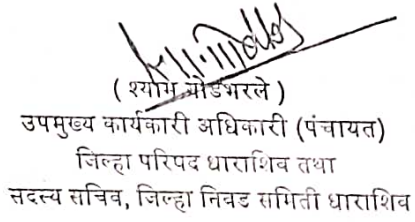 ( श्याम गोडभरले )
उपमुख्य कार्यकारी अधिकारी (पंचायत)
जिल्हा परिषद धाराशिव तथा
सदस्य सचिव, जिल्हा निवड समिती धाराशिव